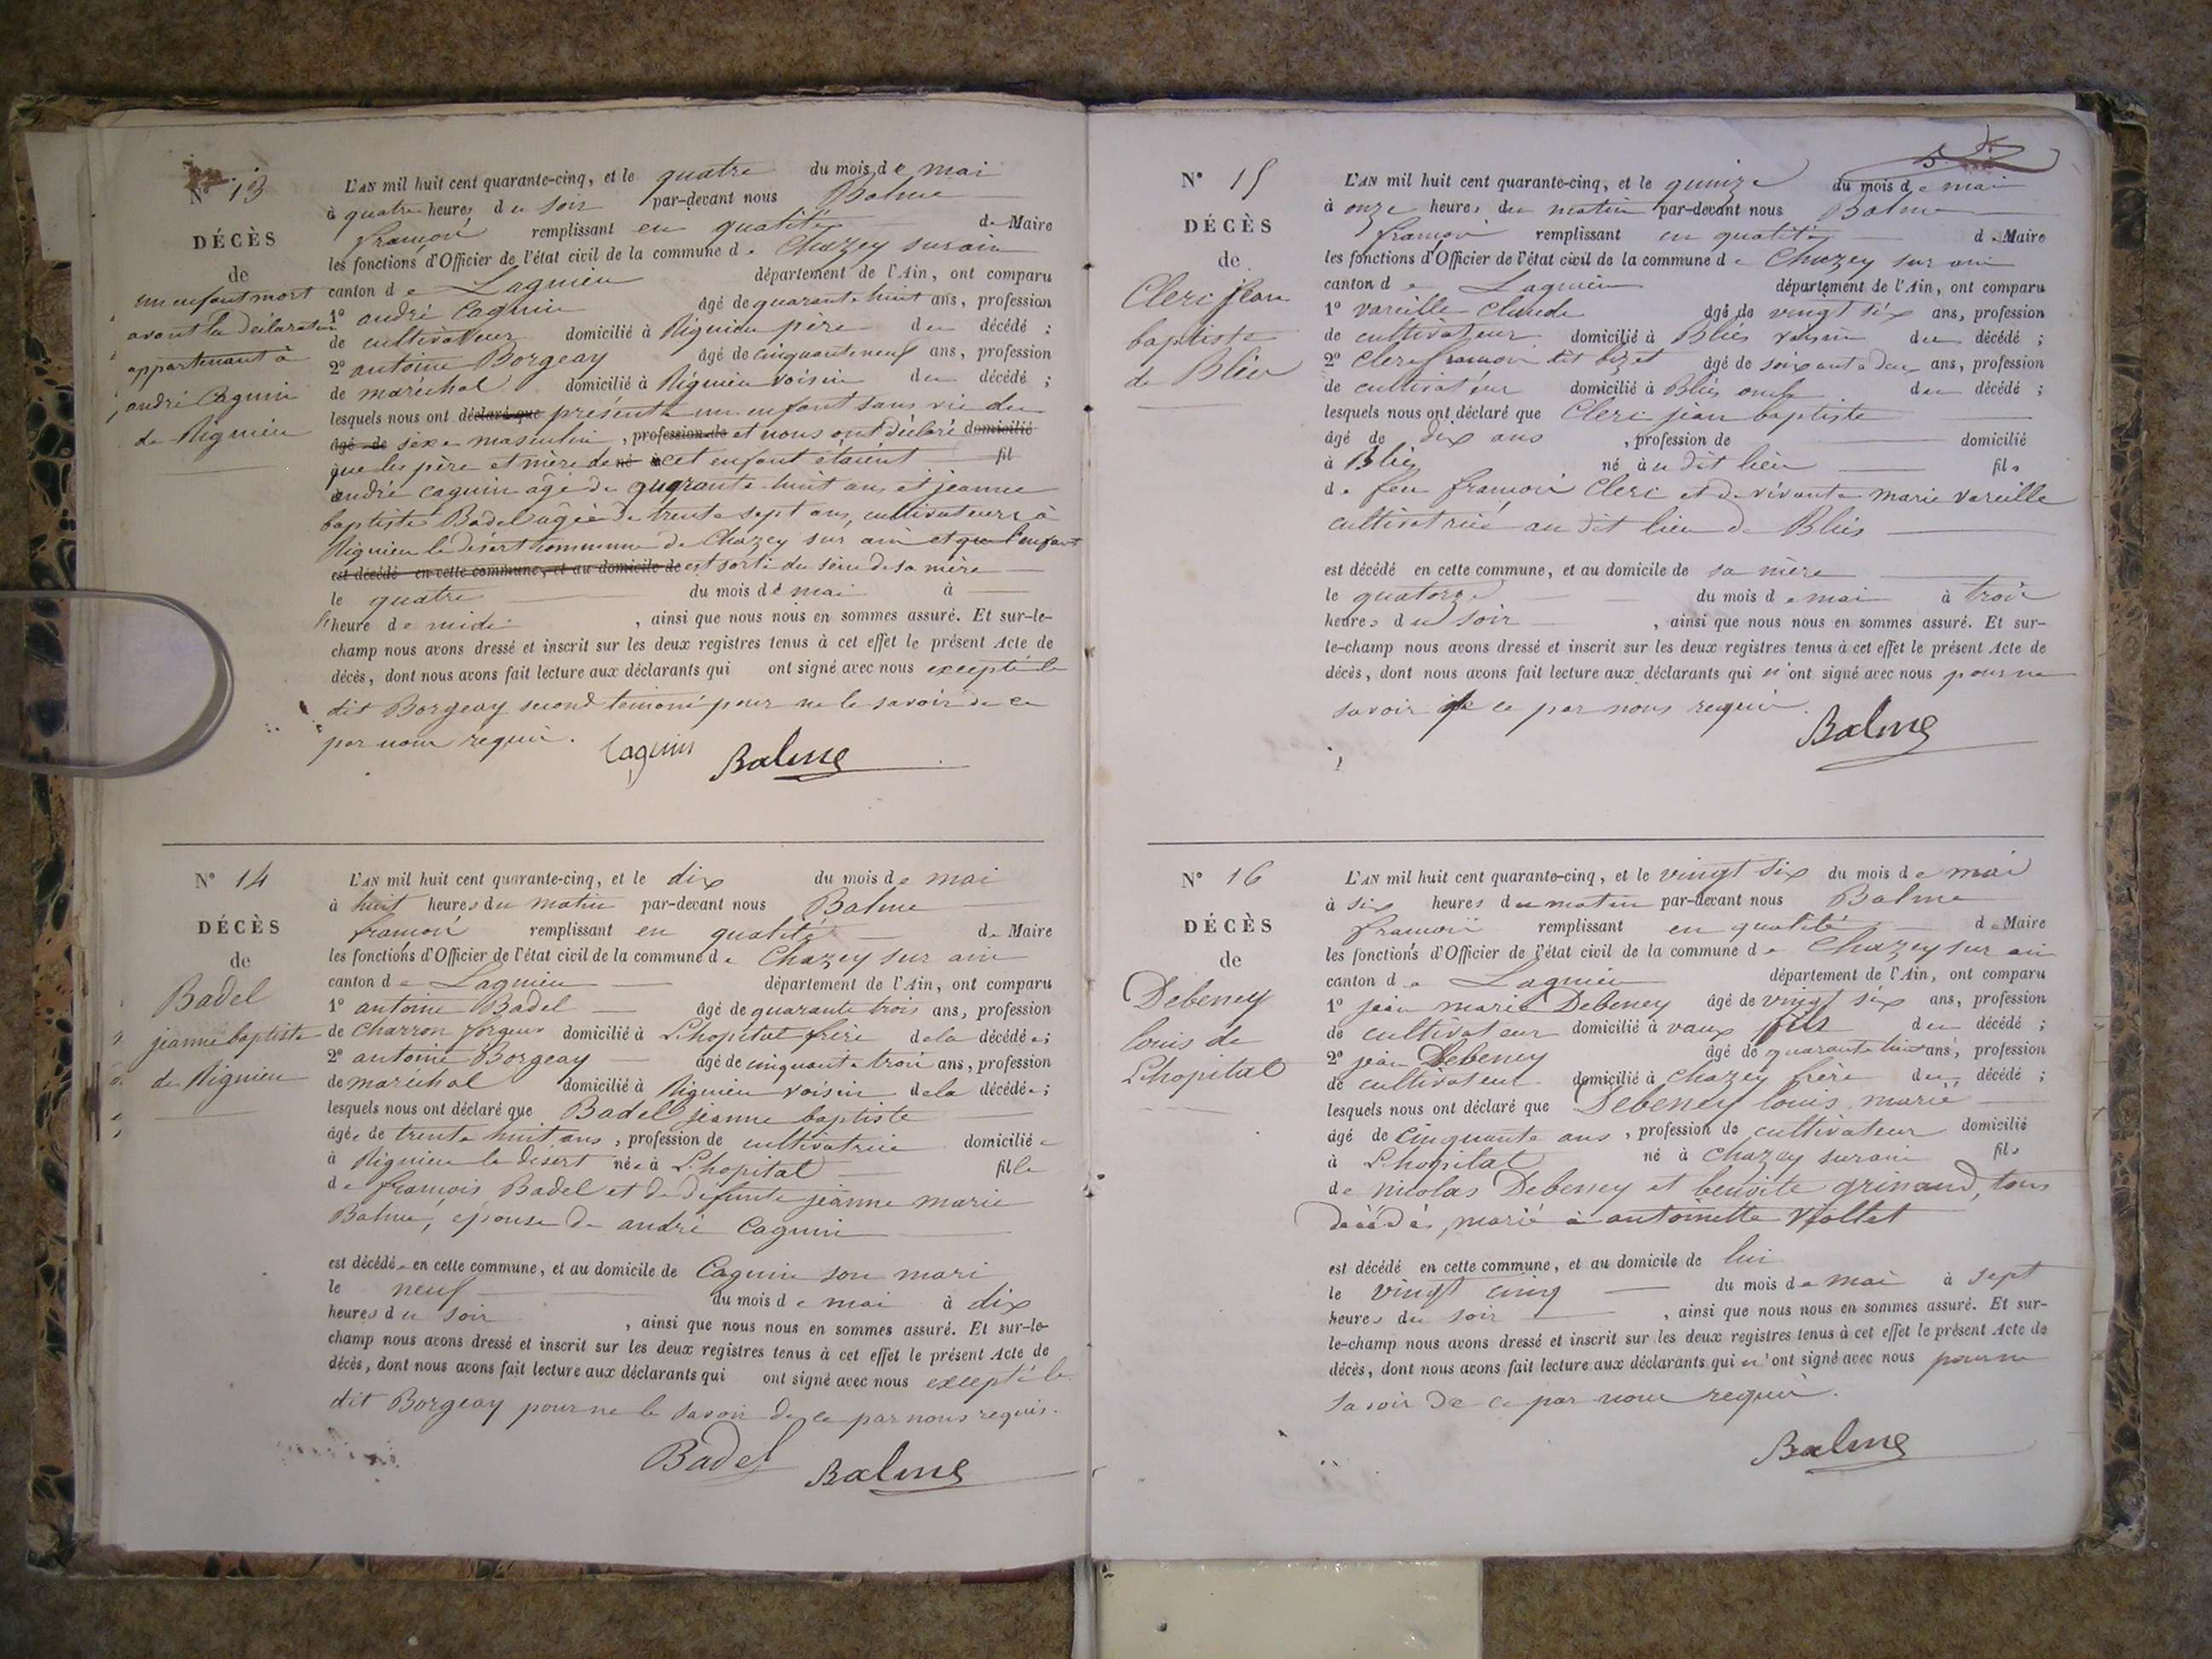 N° 13
DÉCÈS
de
un enfant mort
avant la déclaration
appartenant à
andré Caguin
de Rignieu
L'AN mil huit cent quarante-cinq, et le quatre du mois de mai
à quatre heures du soir par-devant nous Balme
françois remplissant en qualité de Maire
les fonctions d'Officier de l'état civil de la commune de Chazey sur ain
canton de Lagnieu département de l'Ain, ont comparu
1° andré Caguin âgé de quarante huit ans, profession
de cultivateur domicilié à Rignieu père du décédé ;
2° antoine Borgeay âgé de cinquante neuf ans, profession
de maréchal domicilié à Rignieu voisin du décédé ;
lesquels nous ont déclaré que présenté un enfant sans vie du
âgé de sexe masculin, profession de et nous ont déclaré domicilié
que les père et mère de né à cet enfant étaient fil
andré caguin âgé de quarante huit ans et jeanne
baptiste Badel âgée de trente sept ans, cultivateurs à
Rignieu le désert commune de Chazey sur ain et que l'enfant
est décédé en cette commune, et au domicile de est sorti du sein de sa mère
le quatre du mois de mai à
heure de midi , ainsi que nous nous en sommes assuré. Et sur-le-
champ nous avons dressé et inscrit sur les deux registres tenus à cet effet le présent Acte de
décès, dont nous avons fait lecture aux déclarants qui ont signé avec nous excepté le
dit Borgeay second témoin pour ne le savoir de ce
par nous requis. Caguin Balme
N° 14
DÉCÈS
de
Badel
jeanne baptiste
de Rignieu
L'AN mil huit cent quarante-cinq, et le dix du mois de mai
à huit heures du matin par-devant nous Balme
françois remplissant en qualité de Maire
les fonctions d'Officier de l'état civil de la commune de Chazey sur ain
canton de Lagnieu département de l'Ain, ont comparu
1° antoine Badel âgé de quarante trois ans, profession
de Charron forgeur domicilié à L'hopital frère de la décédée ;
2° antoine Borgeay âgé de cinquante trois ans, profession
de maréchal domicilié à Rignieu voisin de la décédée ;
lesquels nous ont déclaré que Badel jeanne baptiste
âgée de trente huit ans, profession de cultivatrice domiciliée
à Rignieu le désert née à L'hopital fille
de françois Badel et de défunte jeanne marie
Balme, épouse de andré Caguin
est décédée en cette commune, et au domicile de Caguin son mari
le neuf du mois de mai à dix
heures du soir , ainsi que nous nous en sommes assuré. Et sur-le-
champ nous avons dressé et inscrit sur les deux registres tenus à cet effet le présent Acte de
décès, dont nous avons fait lecture aux déclarants qui ont signé avec nous excepté le
dit Borgeay pour ne le savoir de ce par nous requis.
Badel Balme
N° 15
DÉCÈS
de
Clerc jean
baptiste
de Bliés
L'AN mil huit cent quarante-cinq, et le quinze du mois de mai
à onze heures du matin par-devant nous Balme
françois remplissant en qualité de Maire
les fonctions d'Officier de l'état civil de la commune de Chazey sur ain
canton de Lagnieu département de l'Ain, ont comparu
1° vareille Claude âgé de vingt six ans, profession
de cultivateur domicilié à Bliés voisin du décédé ;
2° Clerc françois dit bizet âgé de soixante deux ans, profession
de cultivateur domicilié à Bliés oncle du décédé ;
lesquels nous ont déclaré que Clerc jean baptiste
âgé de dix ans , profession de domicilié
à Bliés né au dit lieu fils
de feu françois Clerc et de vivante marie vareille
cultivatrice au dit lieu de Bliés
est décédé en cette commune, et au domicile de sa mère
le quatorze du mois de mai à trois
heures du soir , ainsi que nous nous en sommes assuré. Et sur-
le-champ nous avons dressé et inscrit sur les deux registres tenus à cet effet le présent Acte de
décès, dont nous avons fait lecture aux déclarants qui n'ont signé avec nous pour ne
savoir de ce par nous requis.
Balme
N° 16
DÉCÈS
de
Debeney
louis de
L'hopital
L'AN mil huit cent quarante-cinq, et le vingt six du mois de mai
à six heures du matin par-devant nous Balme
françois remplissant en qualité de Maire
les fonctions d'Officier de l'état civil de la commune de Chazey sur ain
canton de Lagnieu département de l'Ain, ont comparu
1° jean marie Debeney âgé de vingt six ans, profession
de cultivateur domicilié à vaux fils du décédé ;
2° jean Debeney âgé de quarante huit ans, profession
de cultivateur domicilié à Chazey frère du décédé ;
lesquels nous ont déclaré que Debeney louis marie
âgé de cinquante ans , profession de cultivateur domicilié
à L'hopital né à Chazey sur ain fils
de nicolas Debeney et benoite grinand, tous
décédés, marié à antoinette Viollet
est décédé en cette commune, et au domicile de lui
le vingt cinq du mois de mai à sept
heures du soir , ainsi que nous nous en sommes assuré. Et sur-
le-champ nous avons dressé et inscrit sur les deux registres tenus à cet effet le présent Acte de
décès, dont nous avons fait lecture aux déclarants qui n'ont signé avec nous pour ne
savoir de ce par nous requis.
Balme